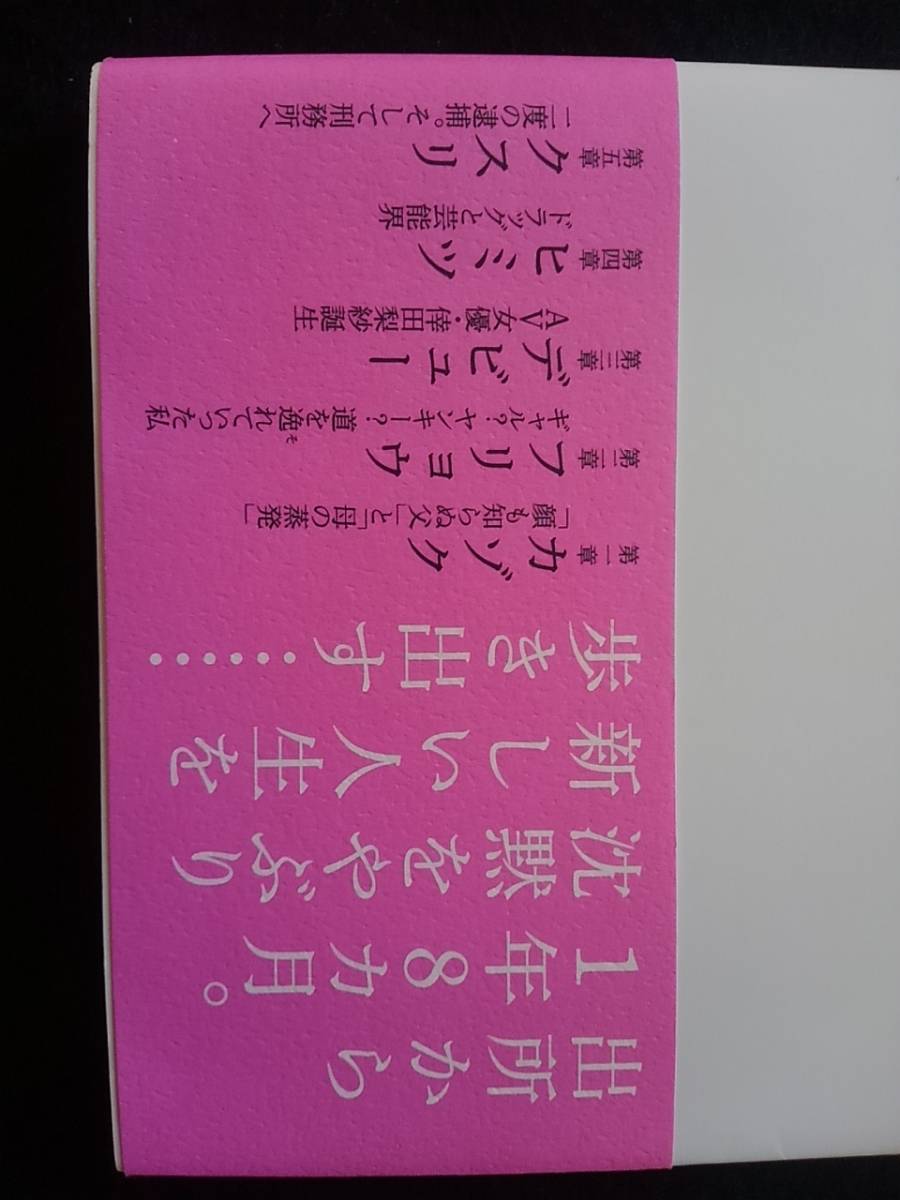 出所から
1年8カ月。
沈黙をやぶり
新しい人生を
歩き出す……
第一章
カゾク
「顔も知らぬ父」と「母の蒸発」
第二章
フリョウ
ギャル?ヤンキー?道を逸れていった私
そ
第三章
デビュー
AV女優・倖田梨紗誕生
第四章
ヒミツ
ドラッグと芸能界
第五章
クスリ
二度の逮捕。そして刑務所へ